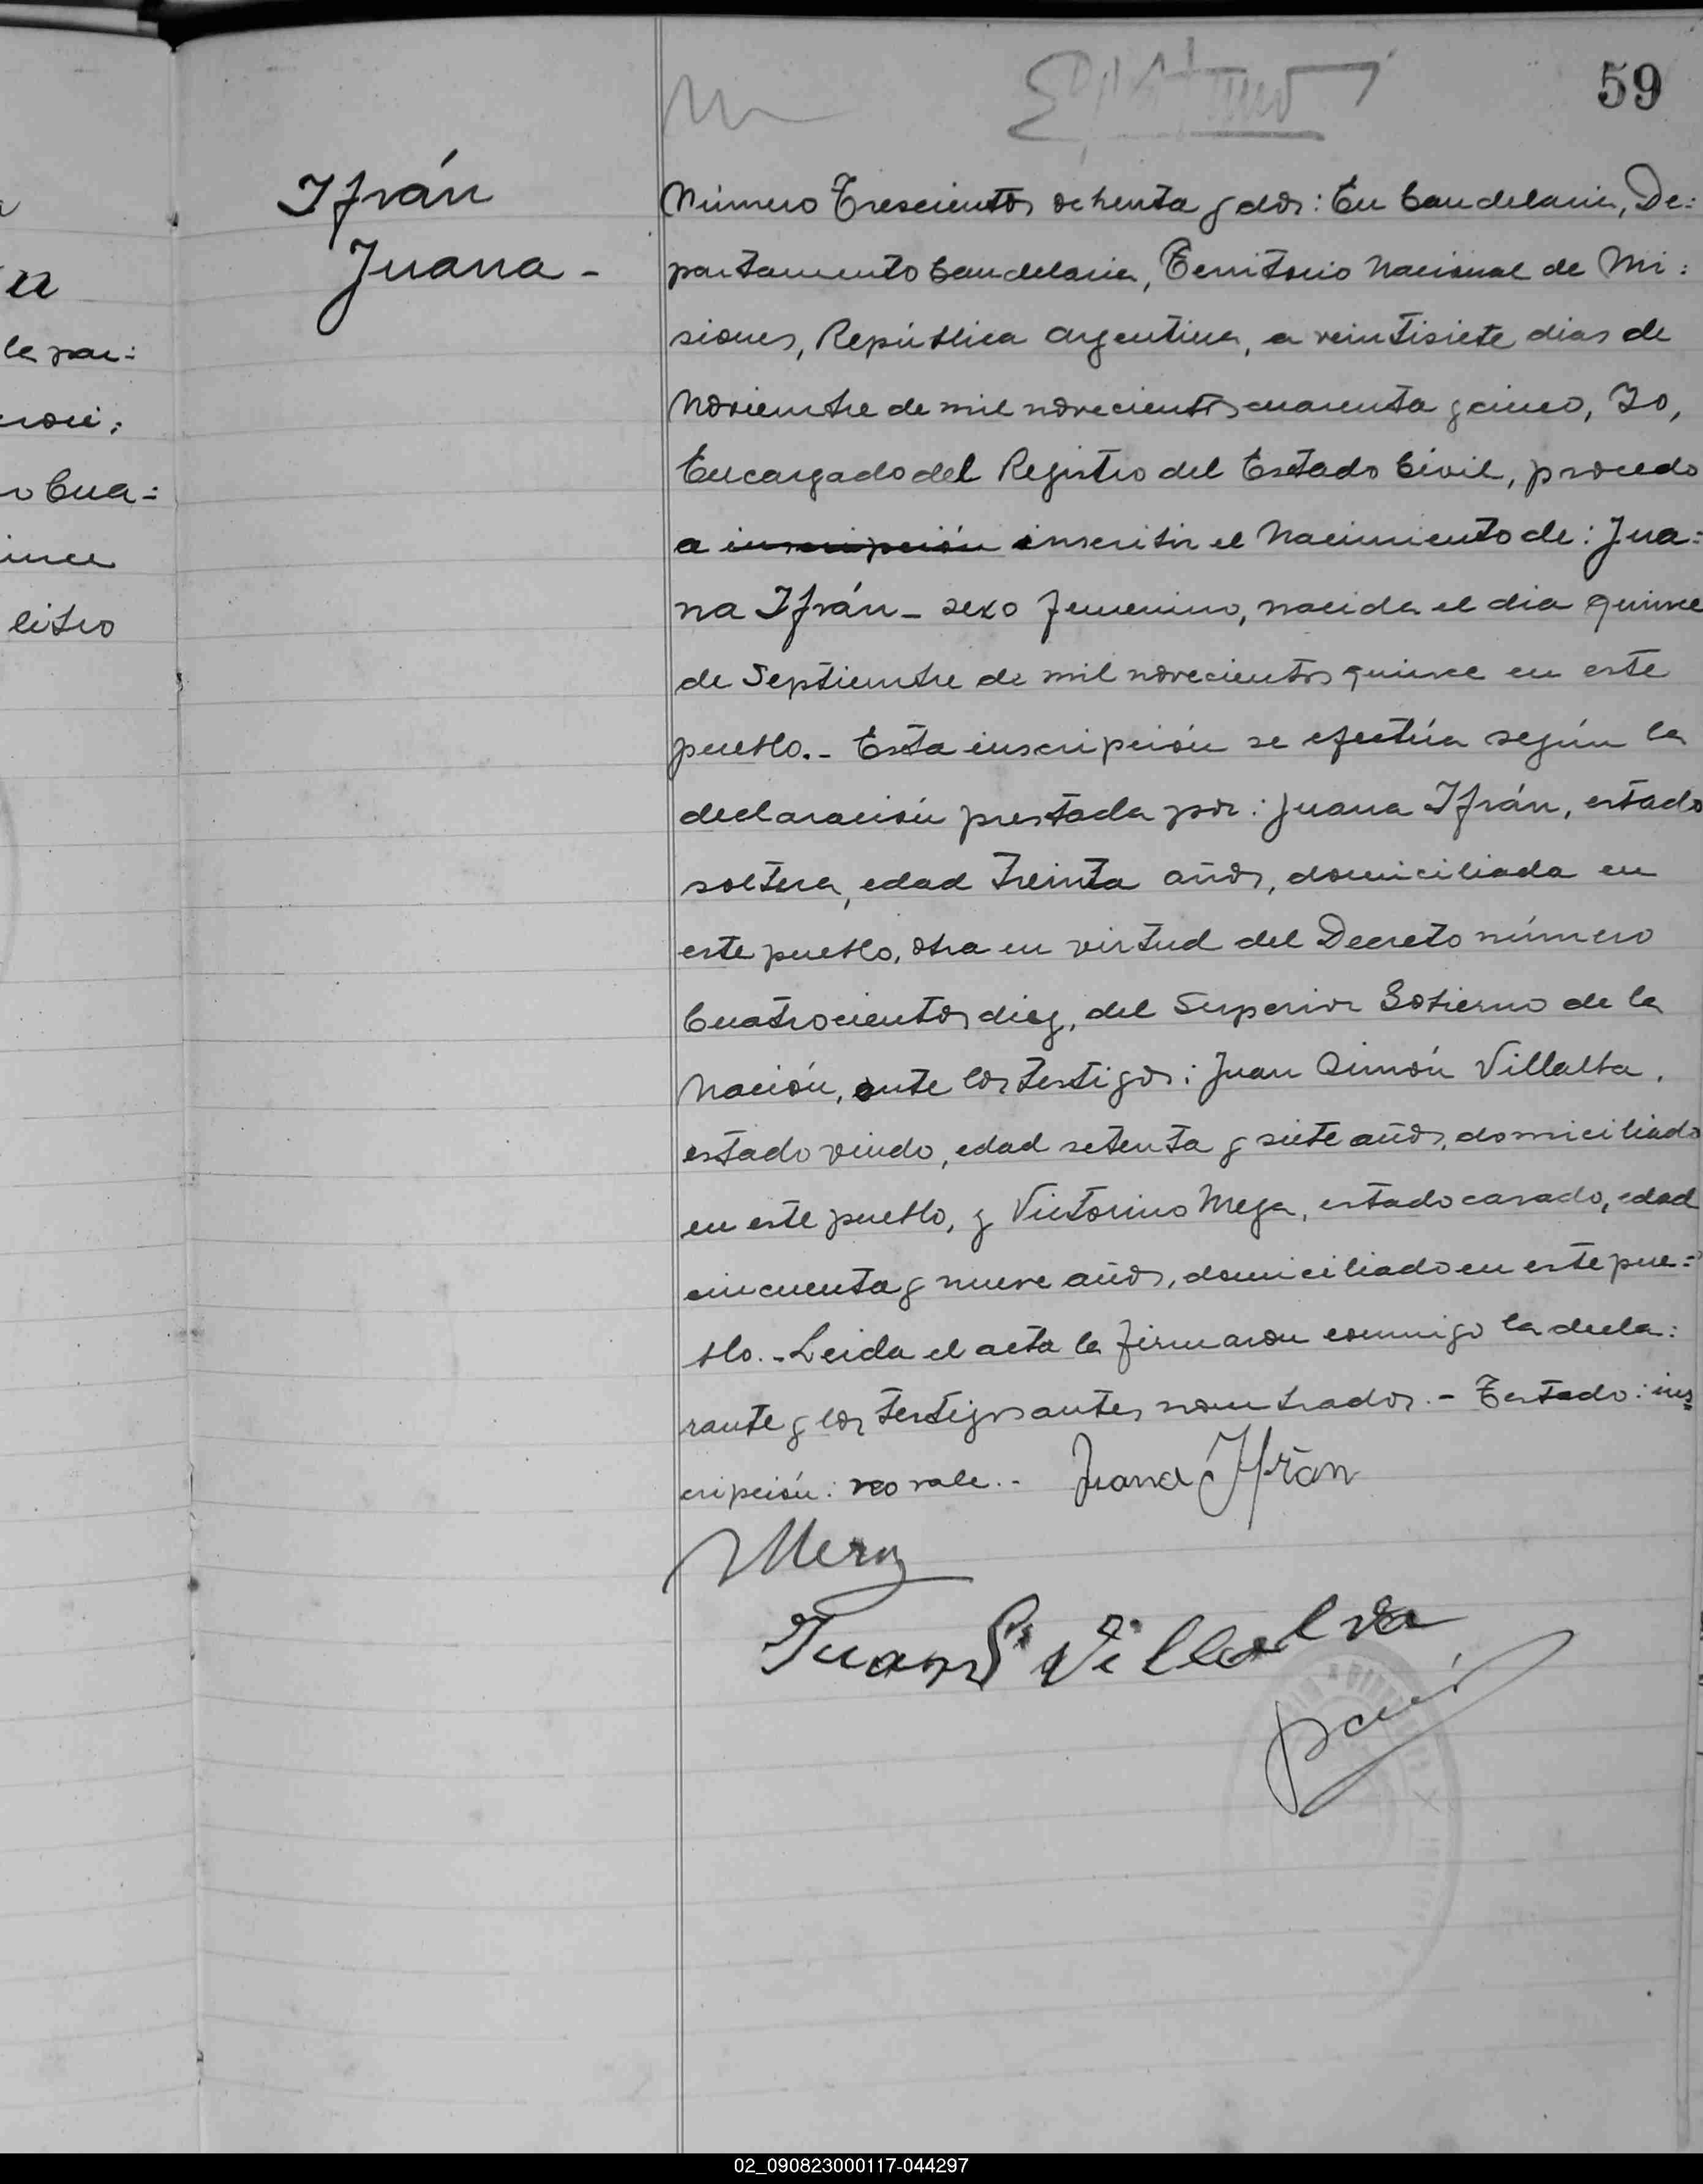 59
Ifrán
Juana-
Número Trescientos ochenta y dos: En Candelaria, De:
partamento Candelaria, Territorio Nacional de Mi:
siones, República Argentina, a veintisiete dias de
Noviembre de mil novecientos cuarenta y cinco, Yo,
Encargado del Registro del Estado Civil, procedo
a inscripción inscribir el Nacimiento de: Jua:
na Ifrán- sexo femenino, nacida el dia quince
de Septiembre de mil novecientos quince en este
pueblo.- Esta inscripción se efectúa según la
declaración prestada por: Juana Ifrán, estado
soltera, edad treinta años, domiciliada en
este pueblo, obra en virtud del Decreto número
Cuatrocientos diez, del Superior Gobierno de la
Nación, ante los testigos: Juan Simón Villalba,
estado viudo, edad setenta y siete años, domiciliado
en este pueblo, y Victorino Meza, estado casado, edad
cincuenta y nueve años, domiciliado en este pue:
blo.- Leida el acta la firmaron conmigo la decla:
rante y los testigos antes nombrados.- Testado: ins
cripción: no vale.- Juana Ifrán
Meza
Juan S Villalva
le par:
o Cua:
litro
02_090823000117-044297